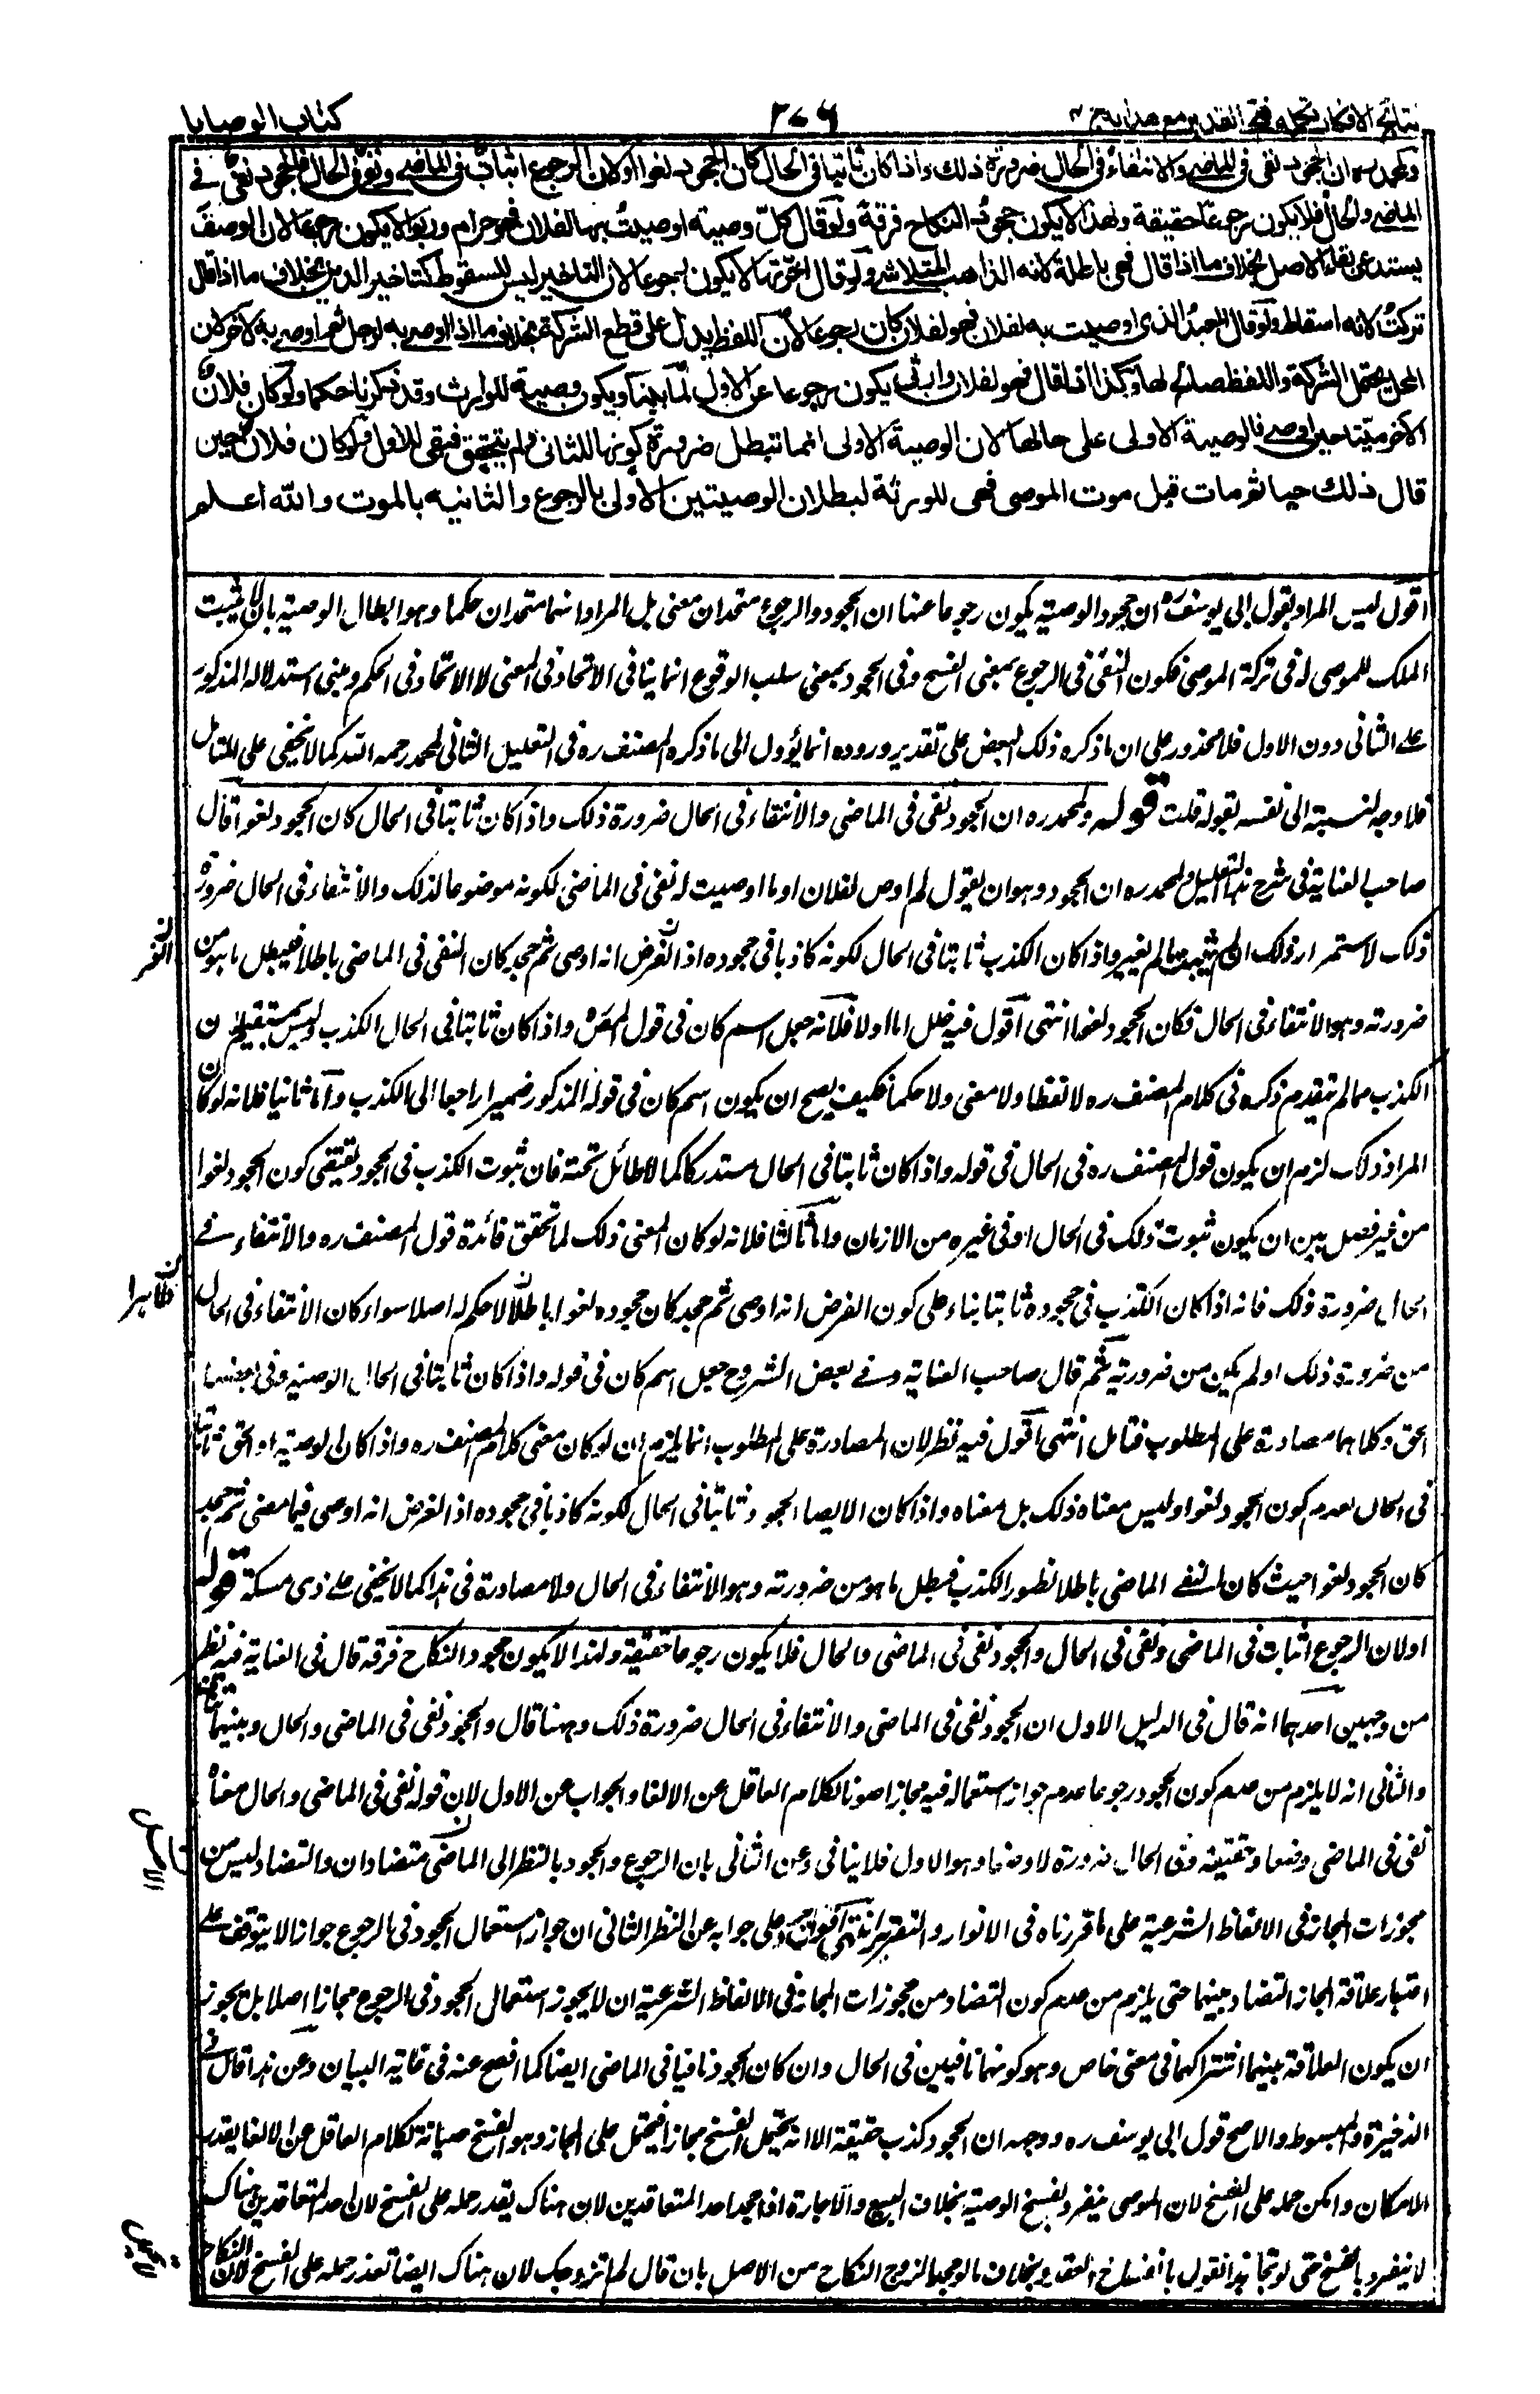 نتائج الافكار تكمله فتح القدير مع هدايه ج ٣
٢٠٦
كتاب الوصايا
ولمحمد رح ان الجحود نفى فى الماضى والانتفاء فى الحال ضرورة ذلك واذا كان ثابتا فى الحال كان الجحود لغوا اولان الرجوع اثبات فى الماضى ونفى فى الحال والجحود نفى فى
الماضى والحال فلا يكون رجوعا حقيقة ولهذا لا يكون جحود النكاح فرقة ولو قال كل وصية اوصيت بها لفلان فهو حرام وربوا لا يكون رجوعا لان الوصف
يستدعى بقاء الاصل بخلاف ما اذا قال فهى باطلة لانه الذاهب المتلاشى ولو قال اخرتها لا يكون رجوعا لان التاخير ليس للسقوط كتاخير الدين بخلاف ما اذا قال
تركت لانه اسقاط ولو قال العبد الذى اوصيت به لفلان فهو لفلان كان رجوعا لان اللفظ يدل على قطع الشركة بخلاف ما اذا اوصى به لرجل ثم اوصى به لآخر لان
المحل يحتمل الشركة واللفظ صالح لها وكذا اذا قال فهو لفلان وارثى يكون رجوعا عن الاول لما بينا ويكون وصية للوارث وقد ذكرنا حكمه ولو كان فلان
الآخر ميتا حين اوصى فالوصية الاولى على حالها لان الوصية الاولى انما تبطل ضرورة كونها للثانى ولم يتحقق فبقى للاول ولو كان فلان حين
قال ذلك حيا ثم مات قبل موت الموصى فهى للورثة لبطلان الوصيتين الاولى بالرجوع والثانيه بالموت والله اعلم
اقول ليس المراد بقول ابى يوسف ره ان جحود الوصية يكون رجوعا عنها ان الجحود والرجوع متحدان معنى بل المراد انهما متحدان حكما وهو ابطال الوصية بان لا يثبت
الملك للموصى له فى تركة الموصى فكون النفى فى الرجوع بمعنى الفسخ وفى الجحود بمعنى سلب الوقوع انما ينافى الاتحاد فى المعنى لا الاتحاد فى الحكم ومبنى استدلاله المذكور
على الثانى دون الاول فلا محذور على ان ما ذكره ذلك البعض على تقدير وروده انما يؤول الى ما ذكره المصنف ره فى التعليل الثانى لمحمد رحمه الله كما لا يخفى على المتامل
فلا وجه لنسبته الى نفسه بقوله قلت قوله ولمحمد ره ان الجحود نفى فى الماضى والانتفاء فى الحال ضرورة ذلك واذا كان ثابتا فى الحال كان الجحود لغوا قال
صاحب العناية فى شرح هذا التعليل ولمحمد ره ان الجحود وهو ان يقول لم اوص لفلان او ما اوصيت له نفى فى الماضى لكونه موضوعا لذلك والانتفاء فى الحال ضرورة
ذلك لاستمرار ذلك اذا ثبت ما لم يغير واذا كان الكذب ثابتا فى الحال لكونه كاذبا فى جحوده اذ الفرض انه اوصى ثم جحد كان النفى فى الماضى باطلا فيبطل ما هو من
ضرورته وهو الانتفاء فى الحال فكان الجحود لغوا انتهى اقول فيه خلل اما اولا فلانه جعل اسم كان فى قول المصنف ره واذا كان ثابتا فى الحال الكذب وليس بمستقيم لان
الكذب مما لم يتقدم ذكره فى كلام المصنف ره لا لفظا ولا معنى ولا حكما فكيف يصح ان يكون اسم كان فى قوله المذكور ضميرا راجعا الى الكذب واما ثانيا فلانه لو كان
المراد ذلك لزم ان يكون قول المصنف ره فى الحال فى قوله واذا كان ثابتا فى الحال مستدركا لا طائل تحته فان ثبوت الكذب فى الجحود يقتضى كون الجحود لغوا
من غير فصل بين ان يكون ثبوت ذلك فى الحال او فى غيره من الازمان واما ثالثا فلانه لو كان المعنى ذلك لما تحقق فائدة قول المصنف ره والانتفاء فى
الحال ضرورة ذلك فانه اذا كان الكذب فى جحوده ثابتا بناء على كون الفرض انه اوصى ثم جحد كان جحوده لغوا باطلا لا حكم له اصلا سواء كان الانتفاء فى الحال
من ضرورة ذلك او لم يكن من ضرورته ثم قال صاحب العناية وفى بعض الشروح جعل اسم كان فى قوله واذا كان ثابتا فى الحال الوصية وفى بعضها
الحق وكلاهما مصادرة على المطلوب فتامل انتهى اقول فيه نظر لان المصادرة على المطلوب انما يلزم ان لو كان معنى كلام المصنف ره واذا كان الوصية او الحق ثابتا
فى الحال لعدم كون الجحود لغوا وليس معناه ذلك بل معناه واذا كان الايصاء الجحود ثابتا فى الحال لكونه كاذبا فى جحوده اذ الفرض انه اوصى فيما مضى ثم جحد
كان الجحود لغوا حيث كان النفى الماضى باطلا لظهور الكذب فبطل ما هو من ضرورته وهو الانتفاء فى الحال ولا مصادرة فى هذا كما لا يخفى على ذى مسكة قوله
اولان الرجوع اثبات فى الماضى ونفى فى الحال والجحود نفى فى الماضى والحال فلا يكون رجوعا حقيقة ولهذا لا يكون جحود النكاح فرقة قال فى العناية فيه نظر
من وجهين احدهما انه قال فى الدليل الاول ان الجحود نفى فى الماضى والانتفاء فى الحال ضرورة ذلك وههنا قال والجحود نفى فى الماضى والحال وبينهما
والثانى انه لا يلزم من عدم كون الجحود رجوعا عدم جواز استعماله فيه مجازا صونا لكلام العاقل عن الالغاء والجواب عن الاول لان قوله نفى فى الماضى والحال معناه
نفى فى الماضى وضعا وحقيقة وفى الحال ضرورة لا وضعا وهو الاول فلا ينافى وعن الثانى بان الرجوع والجحود بالنظر الى الماضى متضادان والتضاد ليس من
مجوزات المجاز فى الالفاظ الشرعية على ما قررناه فى الانوار والتقرير انتهى اقول يرد على جوابه عن النظر الثانى ان جواز استعمال الجحود فى الرجوع جوازا لا يتوقف على
اعتبار علاقة المجاز التضاد بينهما حتى يلزم من عدم كون التضاد من مجوزات المجاز فى الالفاظ الشرعية ان لا يجوز استعمال الجحود فى الرجوع مجازا اصلا بل يجوز
ان يكون العلاقة بينهما اشتراكهما فى معنى خاص وهو كونهما نافيين فى الحال وان كان الجحود نافيا فى الماضى ايضا كما افصح عنه فى غاية البيان وعن هذا قال فى
الذخيرة والمبسوط والاصح قول ابى يوسف ره ووجهه ان الجحود كذب حقيقة الا انه يحتمل الفسخ مجازا فيحمل على المجاز وهو الفسخ صيانة لكلام العاقل عن الالغاء بقدر
الامكان وامكن حمله على الفسخ لان الموصى ينفرد بفسخ الوصية بخلاف البيع والاجارة اذا جحد احد المتعاقدين لان هناك يتعذر حمله على الفسخ لان احد المتعاقدين هناك
لا ينفرد بالفسخ حتى لو تجاحدا نقول بانفساخ العقد وبخلاف ما لو جحد الزوج النكاح من الاصل بان قال لم اتزوجك لان هناك ايضا تعذر حمله على الفسخ لان النكاح